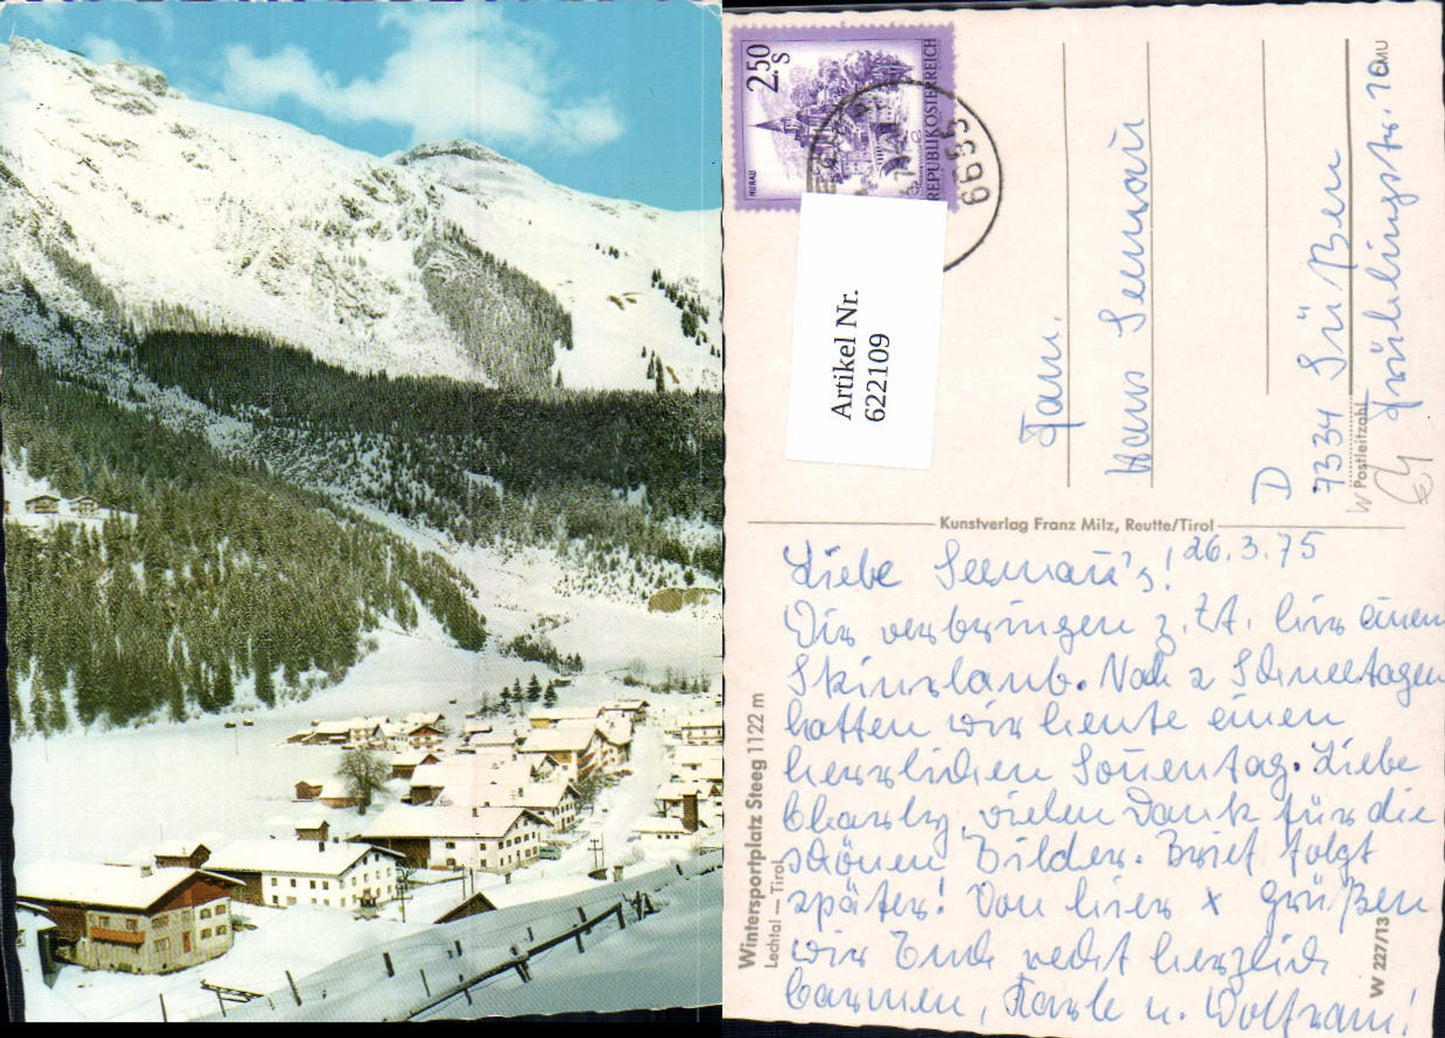 2.50
S
MURAU
REPUBLIK ÖSTERREICH
6655
Artikel Nr.
622109
Fam.
Hans Seemann
D
7334 Süßen
Frühlingstr. 10
Postleitzahl
W
CMU
Kunstverlag Franz Milz, Reutte/Tirol
26.3.75
Liebe Seemann's!
Wir verbringen z. Zt. hier einen
Skiurlaub. Nach 2 Schneetagen
hatten wir heute einen
herrlichen Sonnentag. Liebe
Charly, vielen Dank für die
schönen Bilder. Brief folgt
später! Von hier x grüßen
wir Euch recht herzlich
Carmen, Karle u. Wolfram!
Wintersportplatz Steeg 1122 m
Lechtal — Tirol
W 227/13